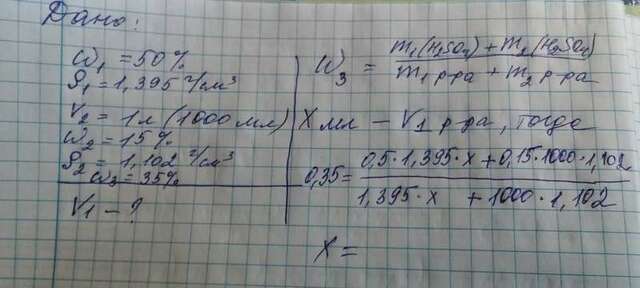 Дано:
ω₁ = 50%
ρ₁ = 1,395 г/см³
V₂ = 1л (1000 мл)
ω₂ = 15%
ρ₂ = 1,102 г/см³
ω₃ = 35%
V₁ - ?
ω₃ = (m₁(H₂SO₄) + m₂(H₂SO₄)) / (m₁ р-ра + m₂ р-ра)
X мл - V₁ р-ра, тогда
0,35 = (0,5·1,395·x + 0,15·1000·1,102) / (1,395·x + 1000·1,102)
x =